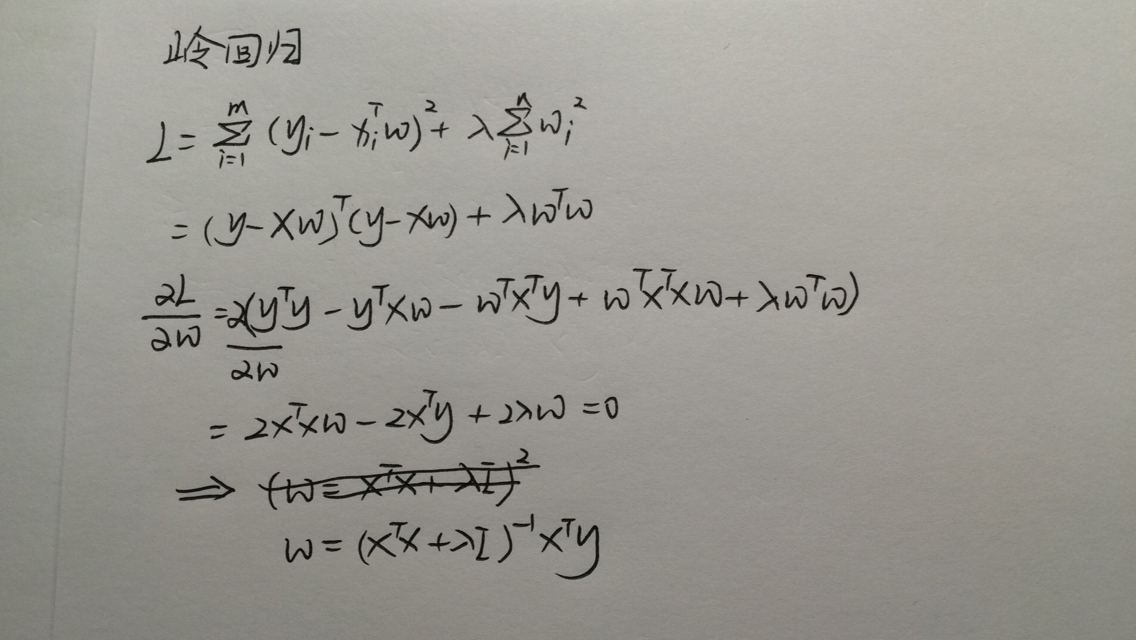 岭回归
L = ∑_{i=1}^{m} (y_i - x_i^T w)^2 + λ ∑_{i=1}^{n} w_i^2
= (y - Xw)^T (y - Xw) + λw^T w
∂L/∂w = ∂(y^T y - y^T Xw - w^T X^T y + w^T X^T Xw + λw^T w)/∂w
= 2X^T Xw - 2X^T y + 2λw = 0
⇒ (w = X^T X + λI)^2
w = (X^T X + λI)^{-1} X^T y